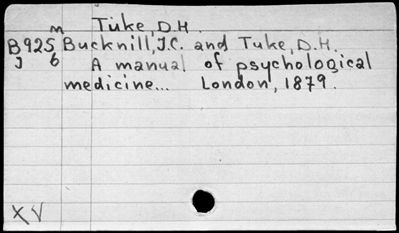 m Tuke, D.H.
B925 Bucknill, J.C. and Tuke, D.H.
J 6 A manual of psychological
medicine... London, 1879.
XV